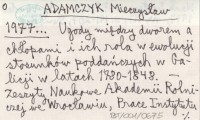 0 ADAMCZYK Mieczysław
1977... Ugody między dworem a
chłopami i ich rola w ewolucji
stosunków poddańczych w Ga-
licji w latach 1780-1848. —
Zeszyty Naukowe Akademii Rolni-
czej we Wrocławiu, Prace Instytutu